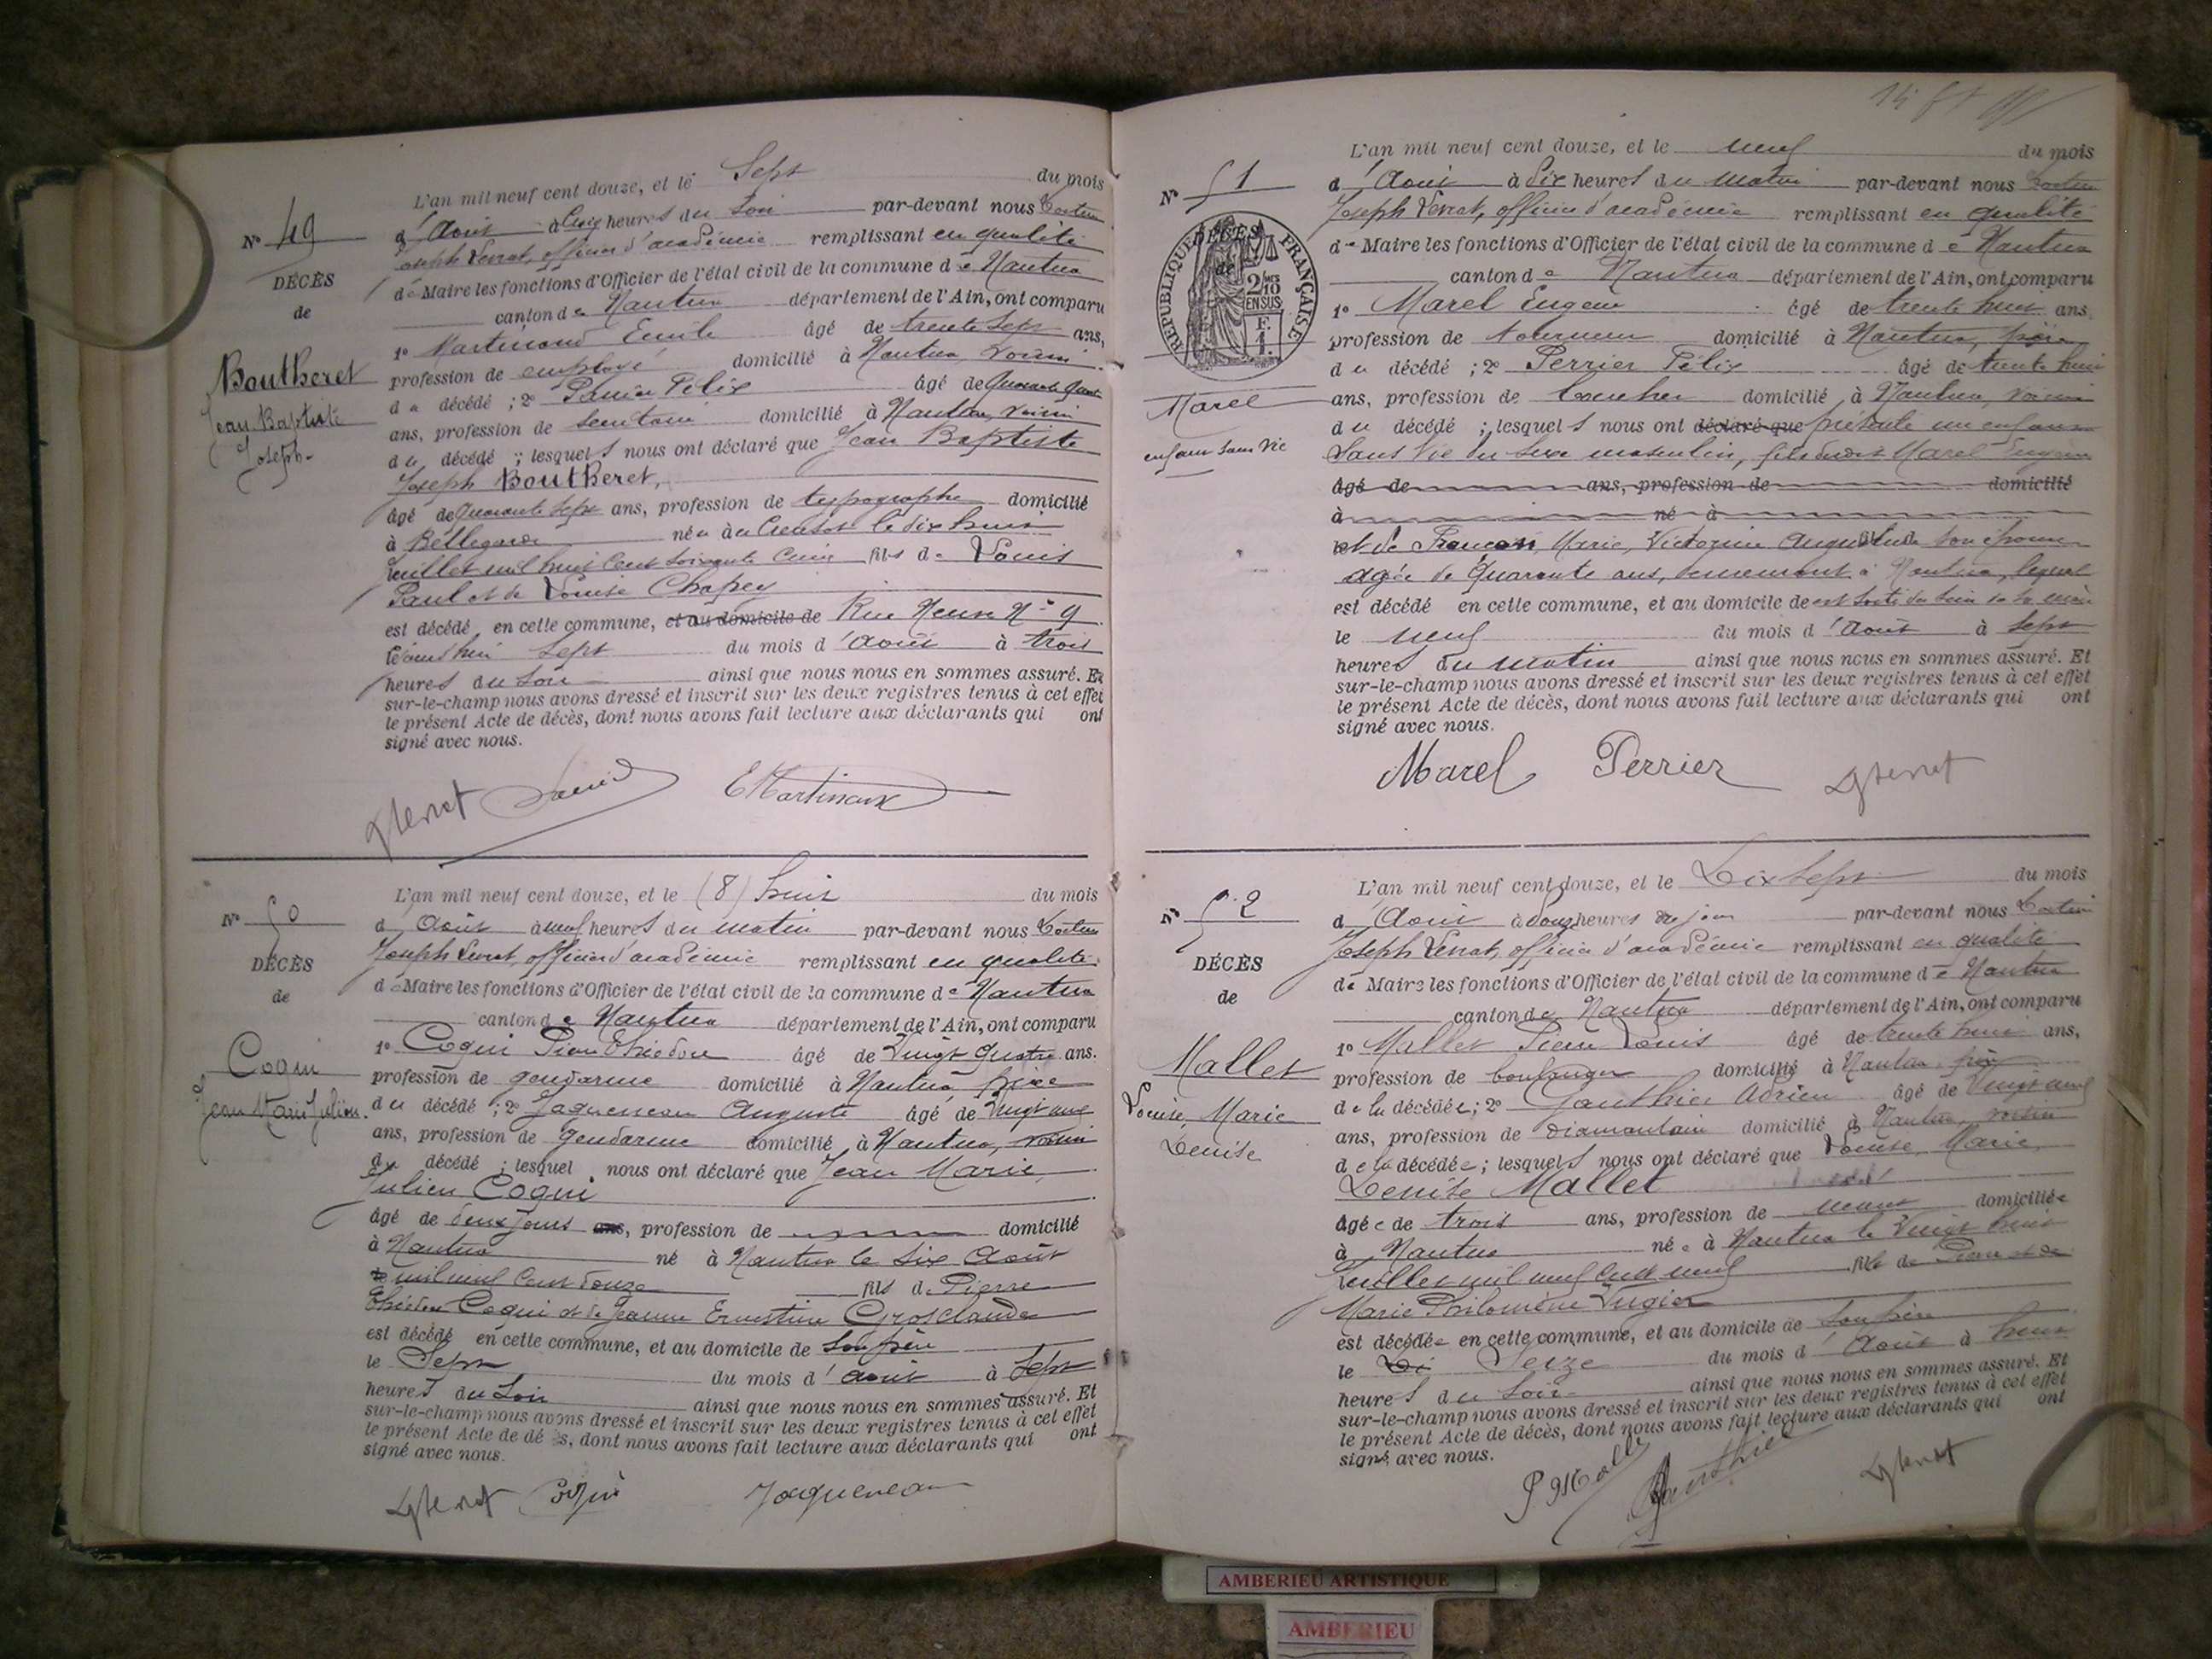 L'an mil neuf cent douze, et le Sept du mois
d'Août à Cinq heures du Soir par-devant nous
Joseph Verrat, officier d'académie remplissant en qualité
de Maire les fonctions d'Officier de l'état civil de la commune de Nantua
canton de Nantua département de l'Ain, ont comparu
1° Martinand Emile âgé de trente Sept ans,
profession de employé domicilié à Nantua, voisin
du décédé ; 2° Félix âgé de Quarante
ans, profession de Secrétaire domicilié à Nantua, voisin
du décédé ; lesquels nous ont déclaré que Jean Baptiste
Joseph Boutheret,
âgé de Quarante Sept ans, profession de typographe domicilié
à Bellegarde né au Creusot le dix huit
Juillet mil huit Cent Soixante Cinq fils de Louis
Paul et de Louise Chapey
est décédé en cette commune, et au domicile de Rue Neuve N° 9
Sept du mois d'août à trois
heures du Soir ainsi que nous nous en sommes assuré. Et
sur-le-champ nous avons dressé et inscrit sur les deux registres tenus à cet effet
le présent Acte de décès, dont nous avons fait lecture aux déclarants qui ont
signé avec nous.
N° 49
DÉCÈS
de
Boutheret
Jean Baptiste
Joseph
L'an mil neuf cent douze, et le (8) huit du mois
d'Août à neuf heures du matin par-devant nous
Joseph Verrat, officier d'académie remplissant en qualité
de Maire les fonctions d'Officier de l'état civil de la commune de Nantua
canton de Nantua département de l'Ain, ont comparu
1° Coqui Pierre Théodore âgé de Vingt quatre ans.
profession de gendarme domicilié à Nantua père
du décédé ; 2° Jaqueneau Auguste âgé de Vingt neuf
ans, profession de gendarme domicilié à Nantua, voisin
du décédé ; lesquel nous ont déclaré que Jean Marie,
Julien Coqui
âgé de deux jours ans, profession de domicilié
à Nantua né à Nantua le Six Août
mil neuf Cent douze fils de Pierre
Théodore Coqui et de Jeanne Ernestine Grosclaude
est décédé en cette commune, et au domicile de Son père
le Sept du mois d'août à Sept
heures du Soir ainsi que nous nous en sommes assuré. Et
sur-le-champ nous avons dressé et inscrit sur les deux registres tenus à cet effet
le présent Acte de dé s, dont nous avons fait lecture aux déclarants qui ont
signé avec nous.
Jaqueneau
N° 50
DÉCÈS
de
Coqui
Jean Marie Julien.
L'an mil neuf cent douze, et le neuf du mois
d'Août à dix heures du matin par-devant nous
Joseph Verrat, officier d'académie remplissant en qualité
de Maire les fonctions d'Officier de l'état civil de la commune de Nantua
canton de Nantua département de l'Ain, ont comparu
1° Marel Eugène âgé de trente huit ans.
profession de tourneur domicilié à Nantua, père
du décédé ; 2° Perrier Félix âgé de trente huit
ans, profession de boucher domicilié à Nantua, voisin
du décédé ; lesquels nous ont déclaré que présenté un enfant
Sans Vie du Sexe masculin, fils dudit Marel Eugène
âgé de ans, profession de domicilié
à né à
et de Marie, Victorine Augustine son épouse
agée de Quarante ans, demeurant à Nantua, lequel
est décédé en cette commune, et au domicile de est sorti du sein de sa mère
le neuf du mois d'Août à Sept
heures du matin ainsi que nous nous en sommes assuré. Et
sur-le-champ nous avons dressé et inscrit sur les deux registres tenus à cet effet
le présent Acte de décès, dont nous avons fait lecture aux déclarants qui ont
signé avec nous.
Marel Perrier
N° 51
RÉPUBLIQUE FRANÇAISE
DÉCÈS
de
2/10 EN SUS
Marel
enfant sans vie
L'an mil neuf cent douze, et le Dix Sept du mois
d'Août à douze heures du jour par-devant nous
Joseph Verrat, officier d'académie remplissant en qualité
de Maire les fonctions d'Officier de l'état civil de la commune de Nantua
canton de Nantua département de l'Ain, ont comparu
1° Mallet Pierre Louis âgé de trente huit ans,
profession de boulanger domicilié à Nantua père
de la décédée ; 2° Gauthier Adrien âgé de Vingt neuf
ans, profession de diamantaire domicilié à Nantua, voisin
de la décédée ; lesquels nous ont déclaré que Louise, Marie,
Denise Mallet
âgée de trois ans, profession de néant domiciliée
à Nantua née à Nantua le Vingt huit
Juillet mil neuf cent neuf fille de Pierre et de
Marie Philomène Vugier
est décédée en cette commune, et au domicile de Son père
le Seize du mois d'Août à huit
heures du Soir ainsi que nous nous en sommes assuré. Et
sur-le-champ nous avons dressé et inscrit sur les deux registres tenus à cet effet
le présent Acte de décès, dont nous avons fait lecture aux déclarants qui ont
signé avec nous.
Gauthier
N° 52
DÉCÈS
de
Mallet
Louise, Marie
Denise
AMBERIEU ARTISTIQUE
AMBERIEU